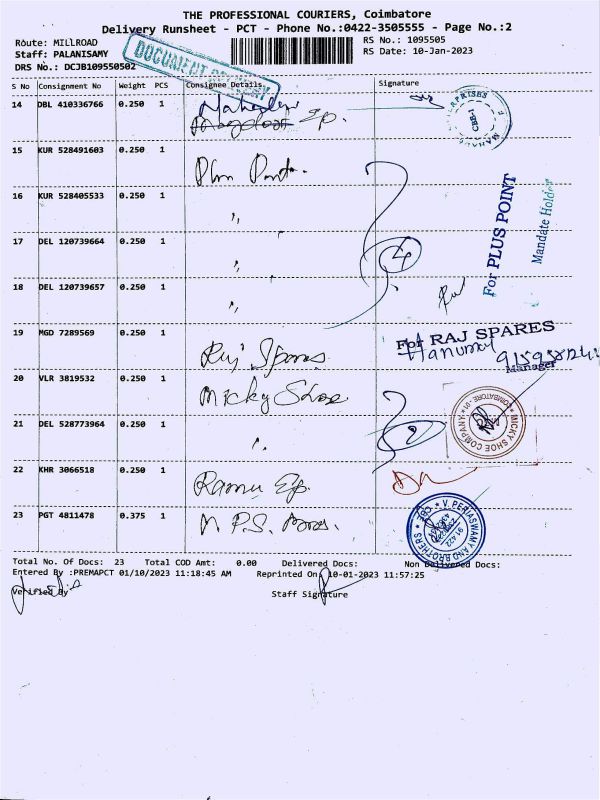 THE PROFESSIONAL COURIERS, Coimbatore
Delivery Runsheet - PCT - Phone No.:0422-3505555 - Page No.:2
Route: MILLROAD
RS No.: 1095505
Staff: PALANISAMY
RS Date: 10-Jan-2023
DRS No.: DCJB109550502
DOCUMENT
S No Consignment No Weight PCS Consignee Details Signature
14 DBL 410336766 0.250 1
Ep.
15 KUR 528491603 0.250 1
16 KUR 528405533 0.250 1 "
17 DEL 120739664 0.250 1 "
18 DEL 120739657 0.250 1 "
4
For PLUS POINT
Mandate Holder
19 MGD 7289569 0.250 1 Raj Spares
For RAJ SPARES
Manager
20 VLR 3819532 0.250 1 Micky Shoe
21 DEL 528773964 0.250 1 "
2
MICKY SHOE COMPANY
COIMBATORE
22 KHR 3066518 0.250 1 Ramu Ep.
23 PGT 4811478 0.375 1 N.P.S. Bros.
V. PERIASWAMY AND BROTHERS
CBE
Total No. Of Docs: 23 Total COD Amt: 0.00 Delivered Docs: Non Delivered Docs:
Entered By :PREMAPCT 01/10/2023 11:18:45 AM Reprinted On: 10-01-2023 11:57:25
Verified By
Staff Signature